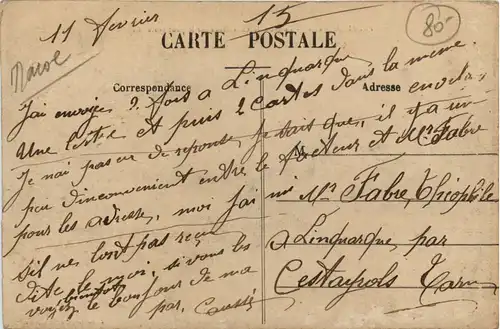 11 Février
15
80-
Maroc
CARTE POSTALE
Correspondance
Adresse
J'ai envoyé 2 fois a Linquarque
Une lettre et puis 2 cartes dans la meme envelop
Je n'ai pas eu de reponse, je sait que, il y a un
peu d'inconvenient entre le facteur et Mr Fabre
pour les adresse, moi j'ai mi
sil ne lont pas reçu
dite le moi, si vous les
voyez bientot le bonjour de ma
par, Caussé
Mr Fabre, Théophile
a Linquarque par
Cestayrols Tarn